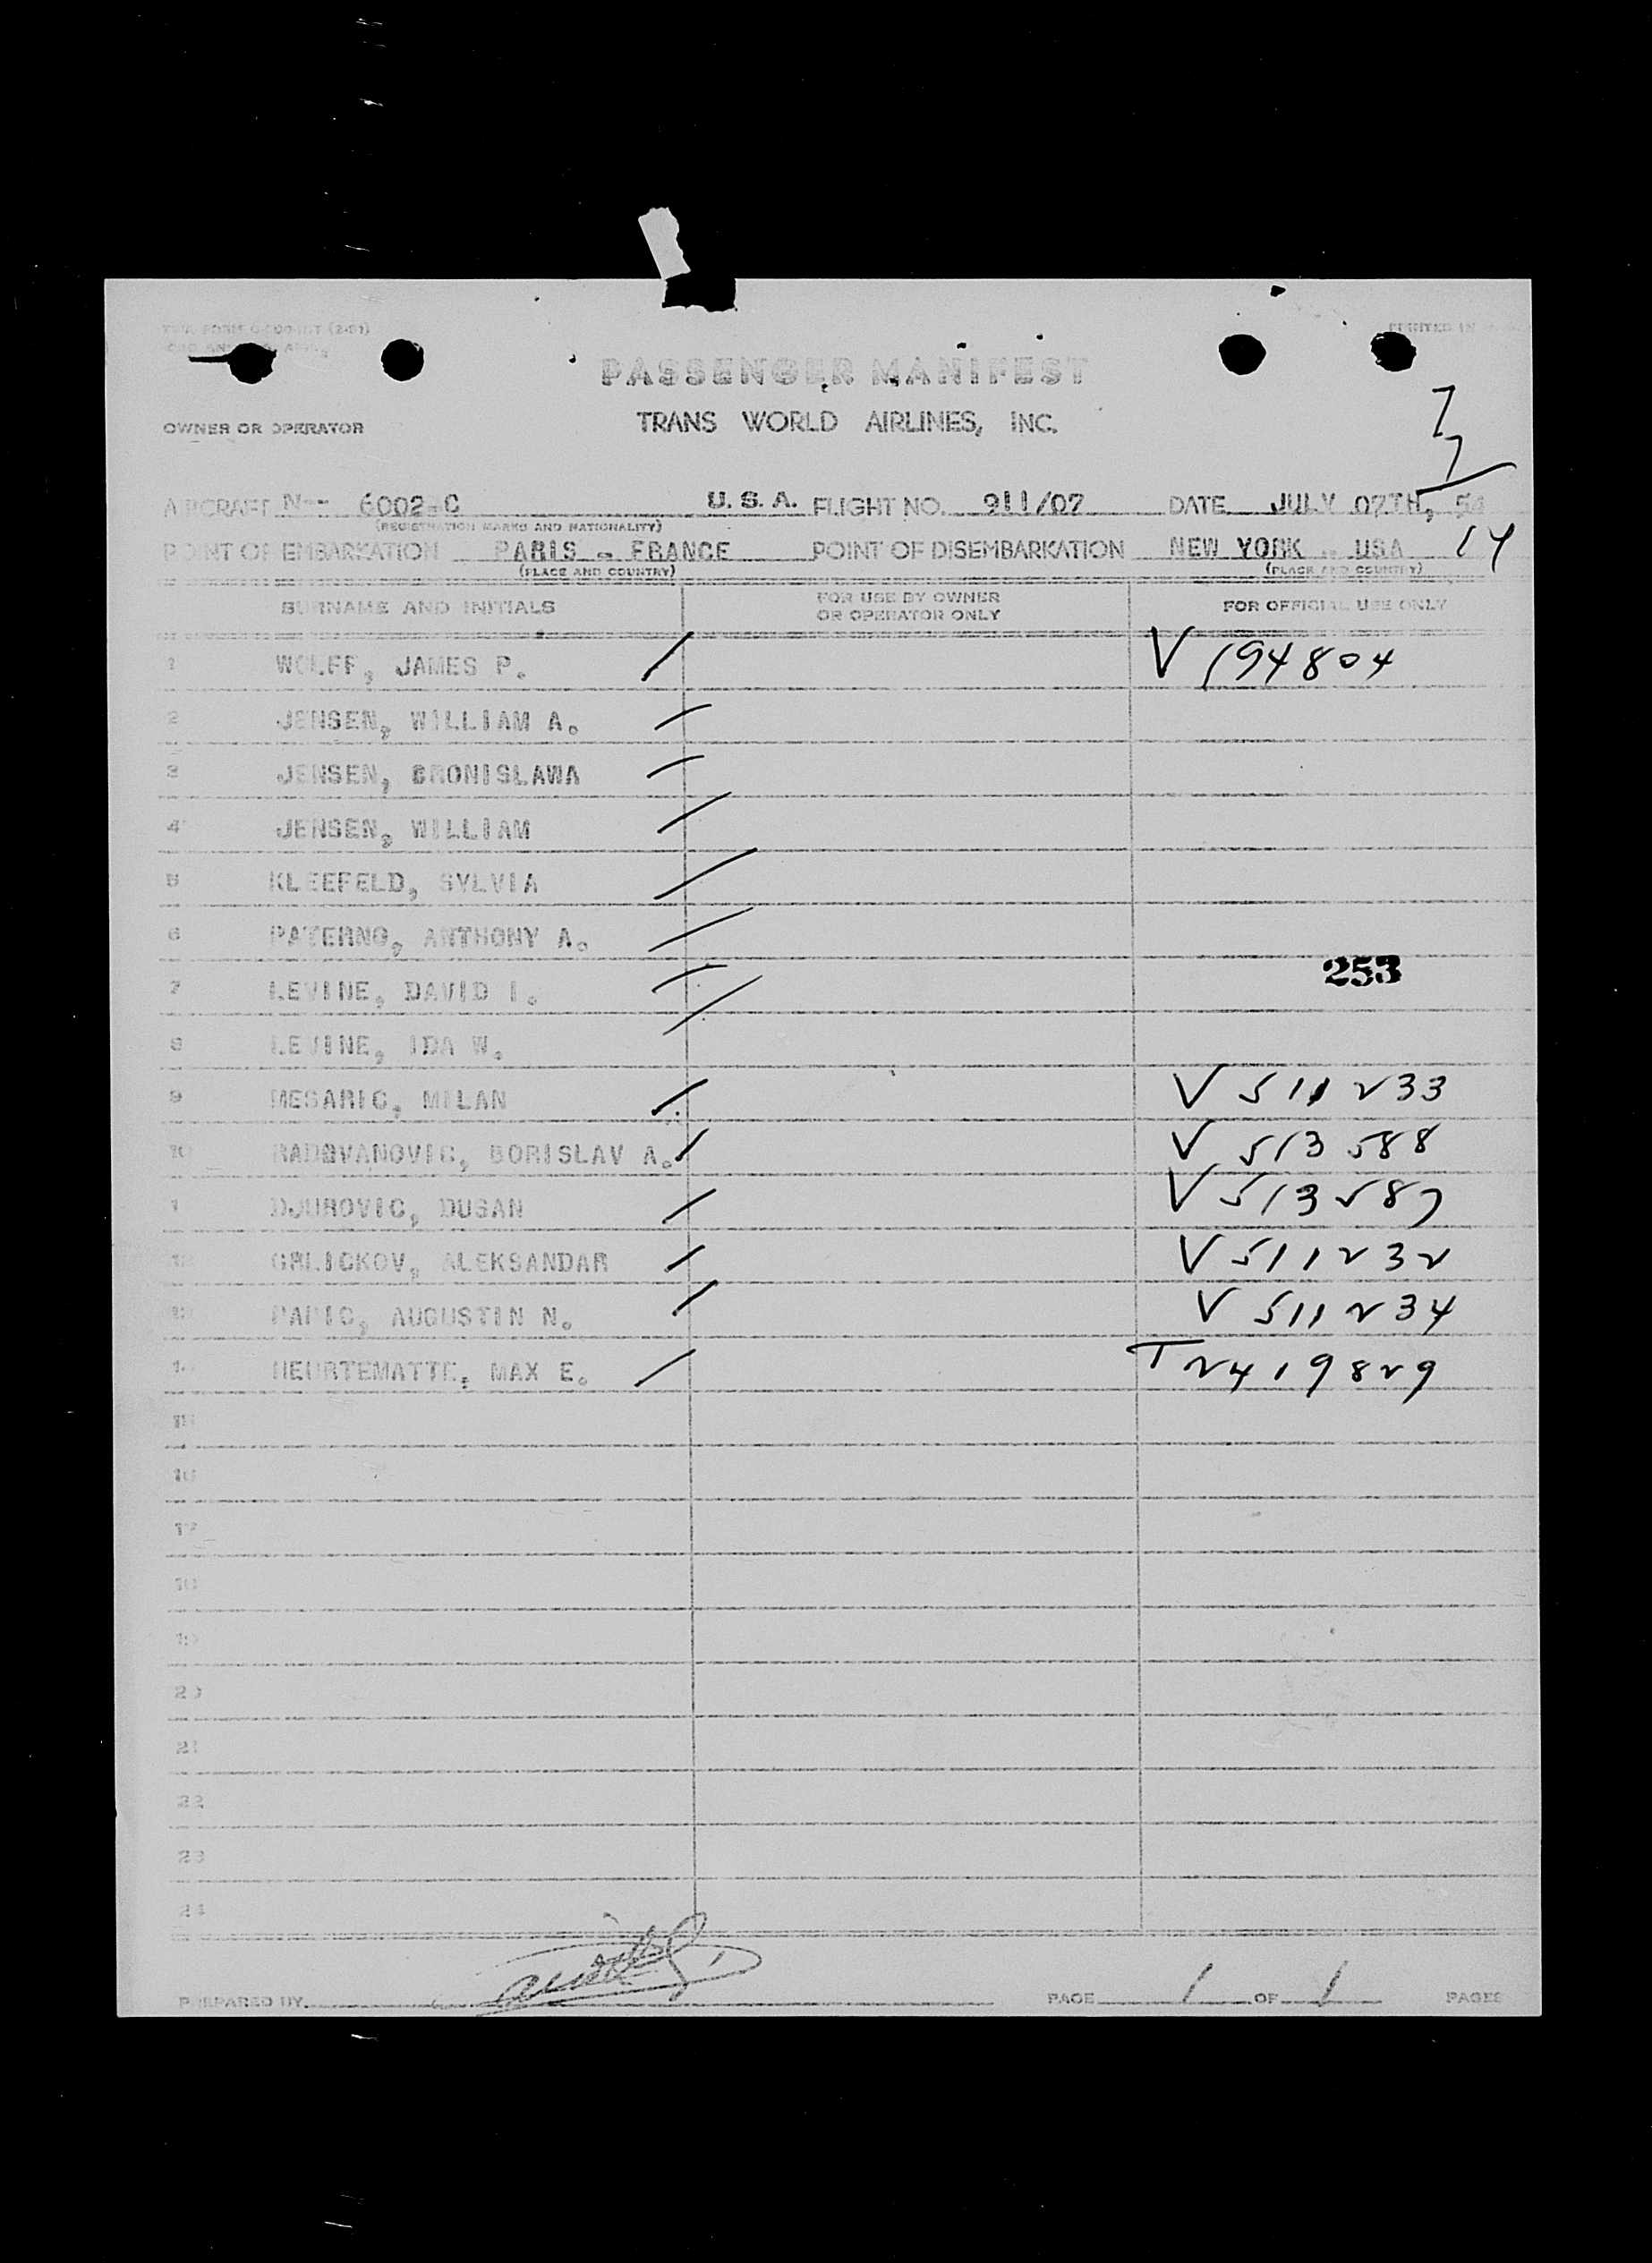 PRINTED IN
PASSENGER MANIFEST
OWNER OR OPERATOR TRANS WORLD AIRLINES, INC.
7
7
AIRCRAFT 6002-C U. S. A. FLIGHT NO. 911/07 DATE JULY 07TH, 54
(REGISTRATION MARKS AND NATIONALITY)
POINT OF EMBARKATION PARIS - FRANCE POINT OF DISEMBARKATION NEW YORK - USA 14
(PLACE AND COUNTRY) (PLACE AND COUNTRY)
SURNAME AND INITIALS FOR USE BY OWNER OR OPERATOR ONLY FOR OFFICIAL USE ONLY
1 WOLFF, JAMES P. / V 194804
2 JENSEN, WILLIAM A. /
3 JENSEN, BRONISLAWA /
4 JENSEN, WILLIAM /
5 KLEEFELD, SYLVIA /
6 PATERNO, ANTHONY A. /
7 LEVINE, DAVID I. / 253
8 LEVINE, IDA W. /
9 MESARIC, MILAN / V 511233
10 RADOVANOVIC, BORISLAV A. / V 513588
11 DJUROVIC, DUSAN / V 513587
12 GRLICKOV, ALEKSANDAR / V 511232
13 PAPIC, AUGUSTIN N. / V 511234
14 HEURTEMATTE, MAX E. / T 2419829
15
16
17
18
19
20
21
22
23
24
PREPARED BY PAGE 1 OF 1 PAGES